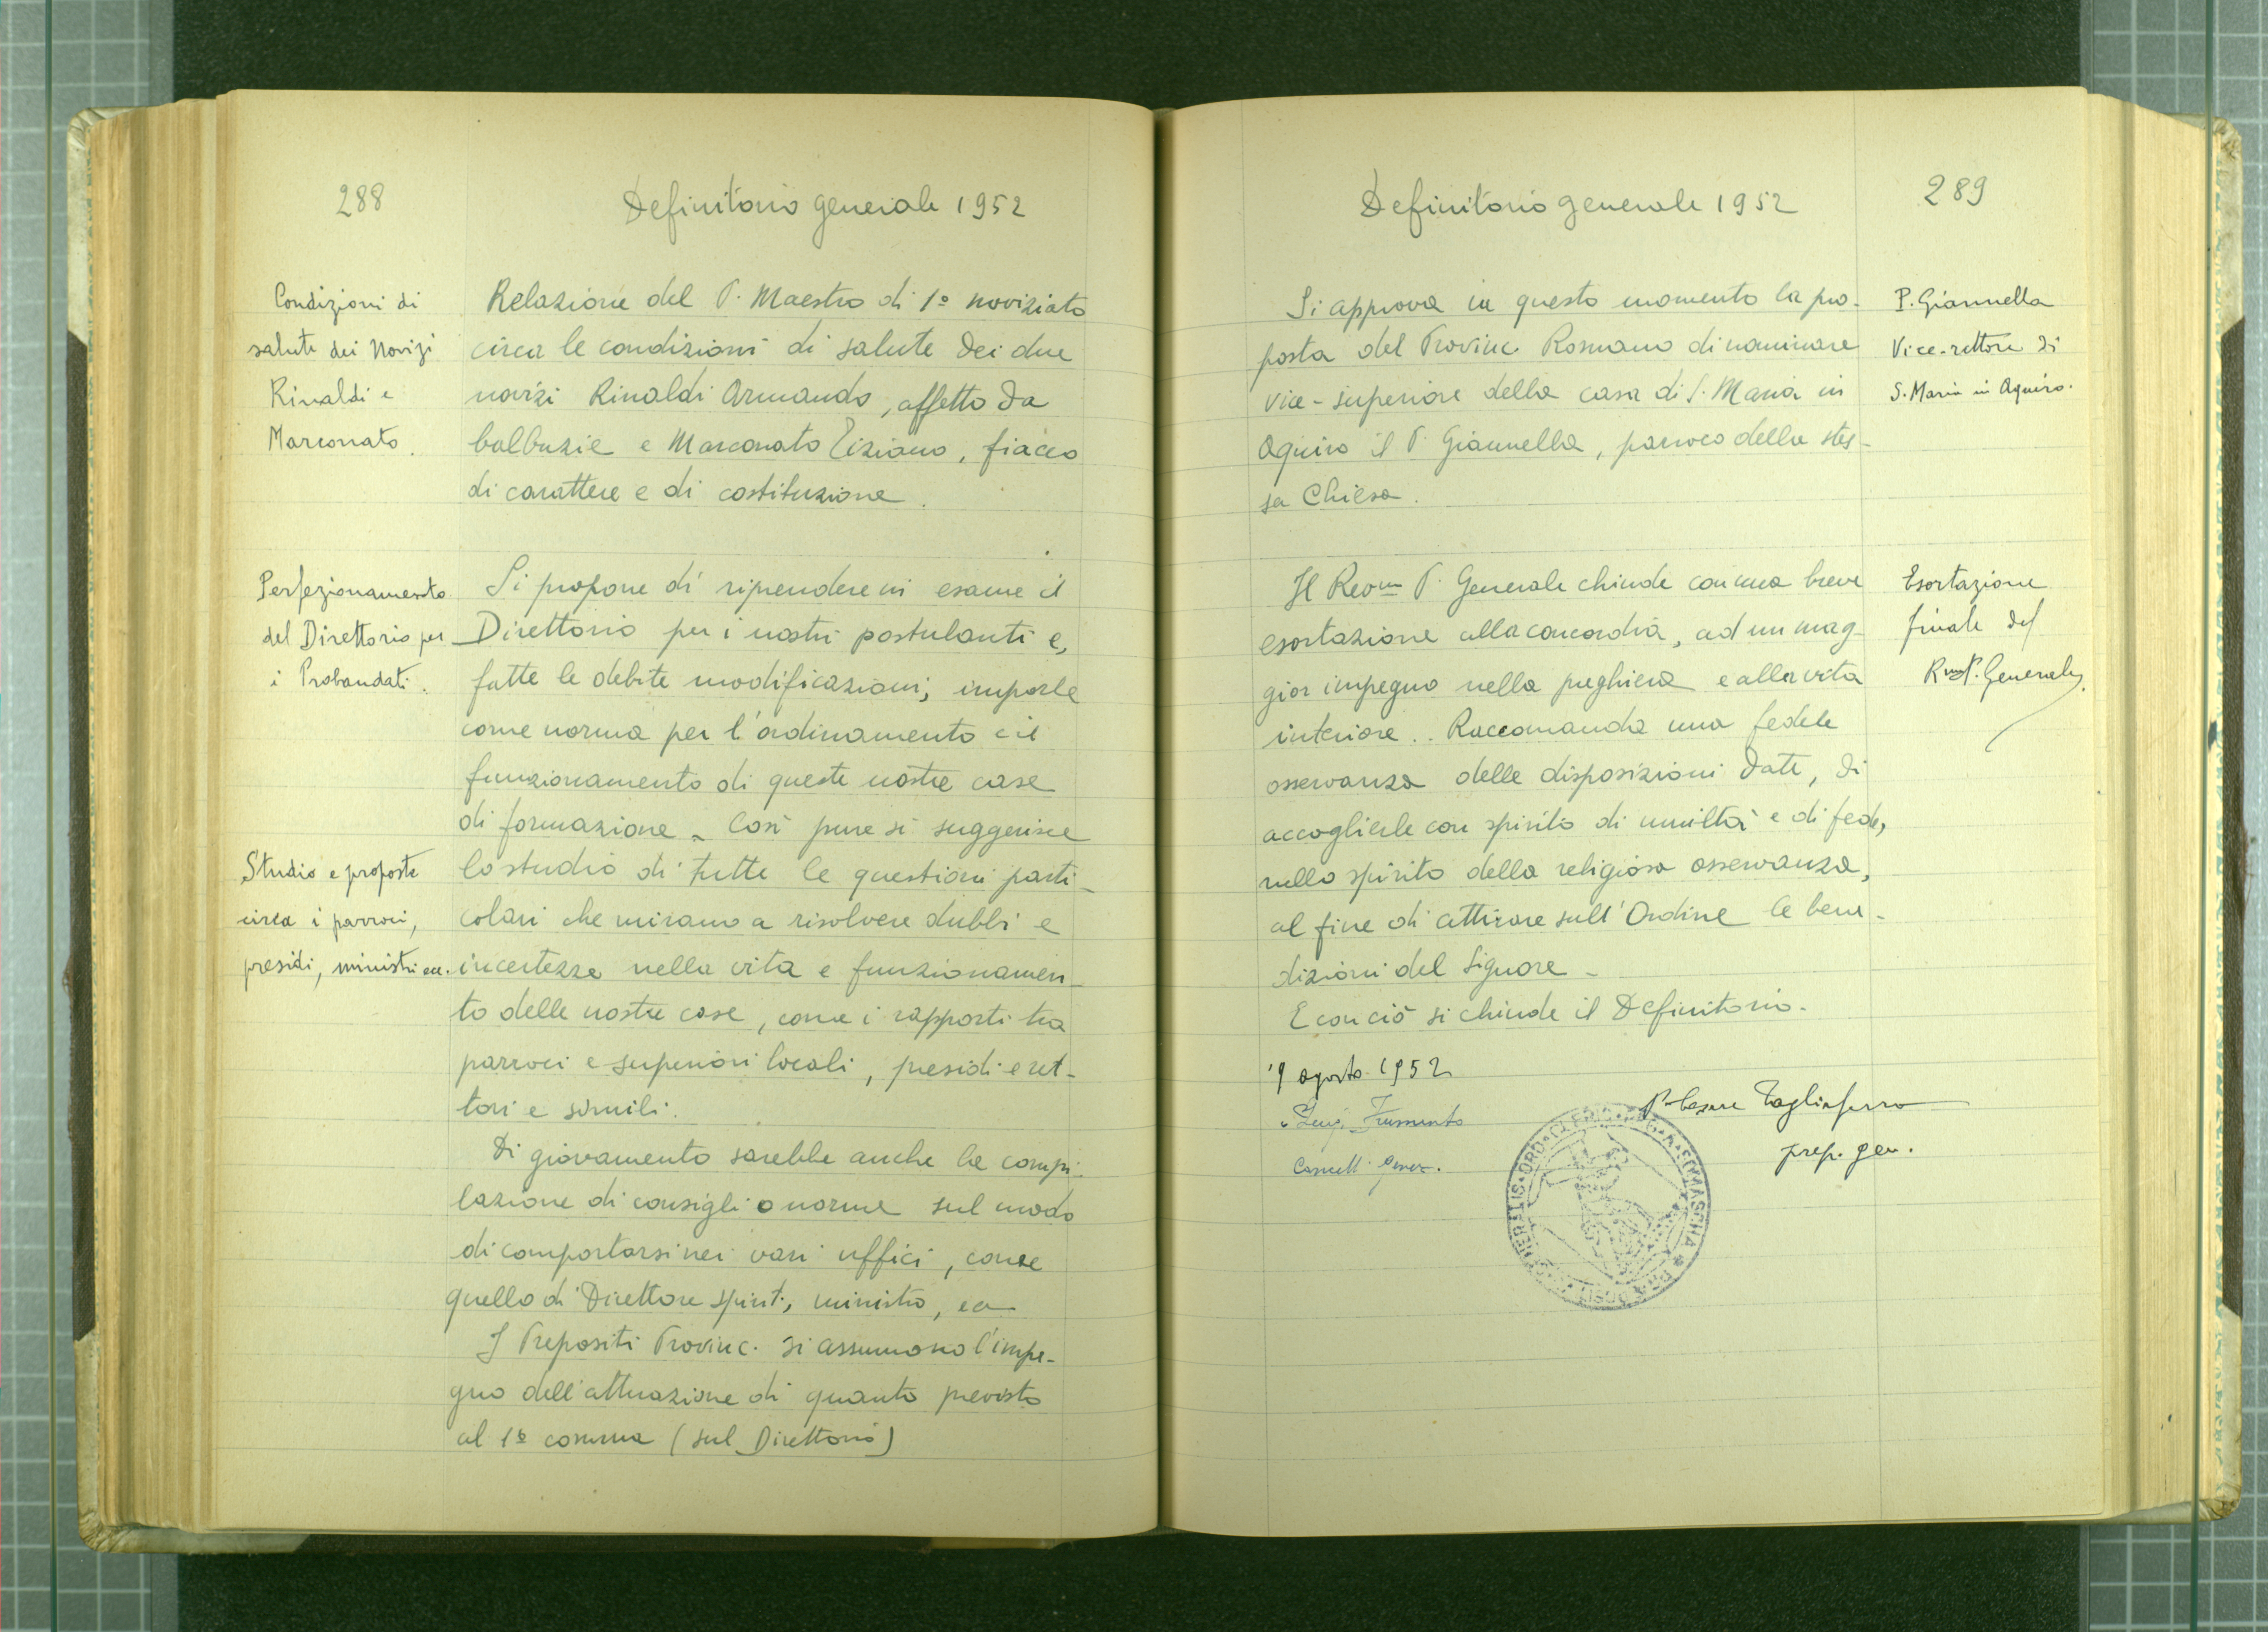 288
Definitorio generale 1952
Condizioni di
salute dei Novizi
Rinaldi e
Marconato.
Relazione del P. Maestro di 1º noviziato
circa le condizioni di salute dei due
novizi Rinaldi Armando, affetto da
balbuzie e Marconato Tiziano, fiacco
di carattere e di costituzione.
Perfezionamento
del Direttorio per
i Probandati.
Si propone di riprendere in esame il
Direttorio per i nostri postulanti e,
fatte le debite modificazioni, imporle
come norma per l'ordinamento e il
funzionamento di queste nostre case
di formazione - Così pure si suggerisce
Studio e proposte
circa i parroci,
presidi, ministri ecc.
lo studio di tutte le questioni parti-
colari che mirano a risolvere dubbi e
incertezze nella vita e funzionamen-
to delle nostre case, come i rapporti tra
parroci e superiori locali, presidi e ret-
tori e simili.
Di giovamento sarebbe anche la compi-
lazione di consigli o norme sul modo
di comportarsi nei vari uffici, come
quello di Direttore spirit., ministro, ecc
I Prepositi Provinc. si assumono l'impe-
gno dell'attuazione di quanto previsto
al 1º comma (sul Direttorio)
Definitorio generale 1952
289
Si approva in questo momento la pro-
posta del Provinc. Romano di nominare
vice-superiore della casa di S. Maria in
Aquiro il P. Giannella, parroco della stes-
sa Chiesa.
P. Giannella
Vice-rettore di
S. Maria in Aquiro.
Il Rev.mo P. Generale chiude con una breve
esortazione alla concordia, ad un mag-
gior impegno nella preghiera e alla vita
interiore.. Raccomanda una fedele
osservanza delle disposizioni date, di
accoglierle con spirito di umiltà e di fede,
nello spirito della religiosa osservanza,
al fine di attirare sull'Ordine le bene-
dizioni del Signore -
E con ciò si chiude il Definitorio.
Esortazione
finale del
Rmo P. Generale.
9 agosto 1952
P. Cesare Tagliaferro
prep. gen.
Luigi Frumento
Cancell. Gener.